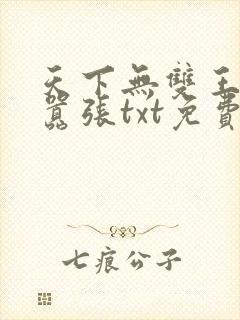 天下無雙王
囂張txt免費
七痕公子